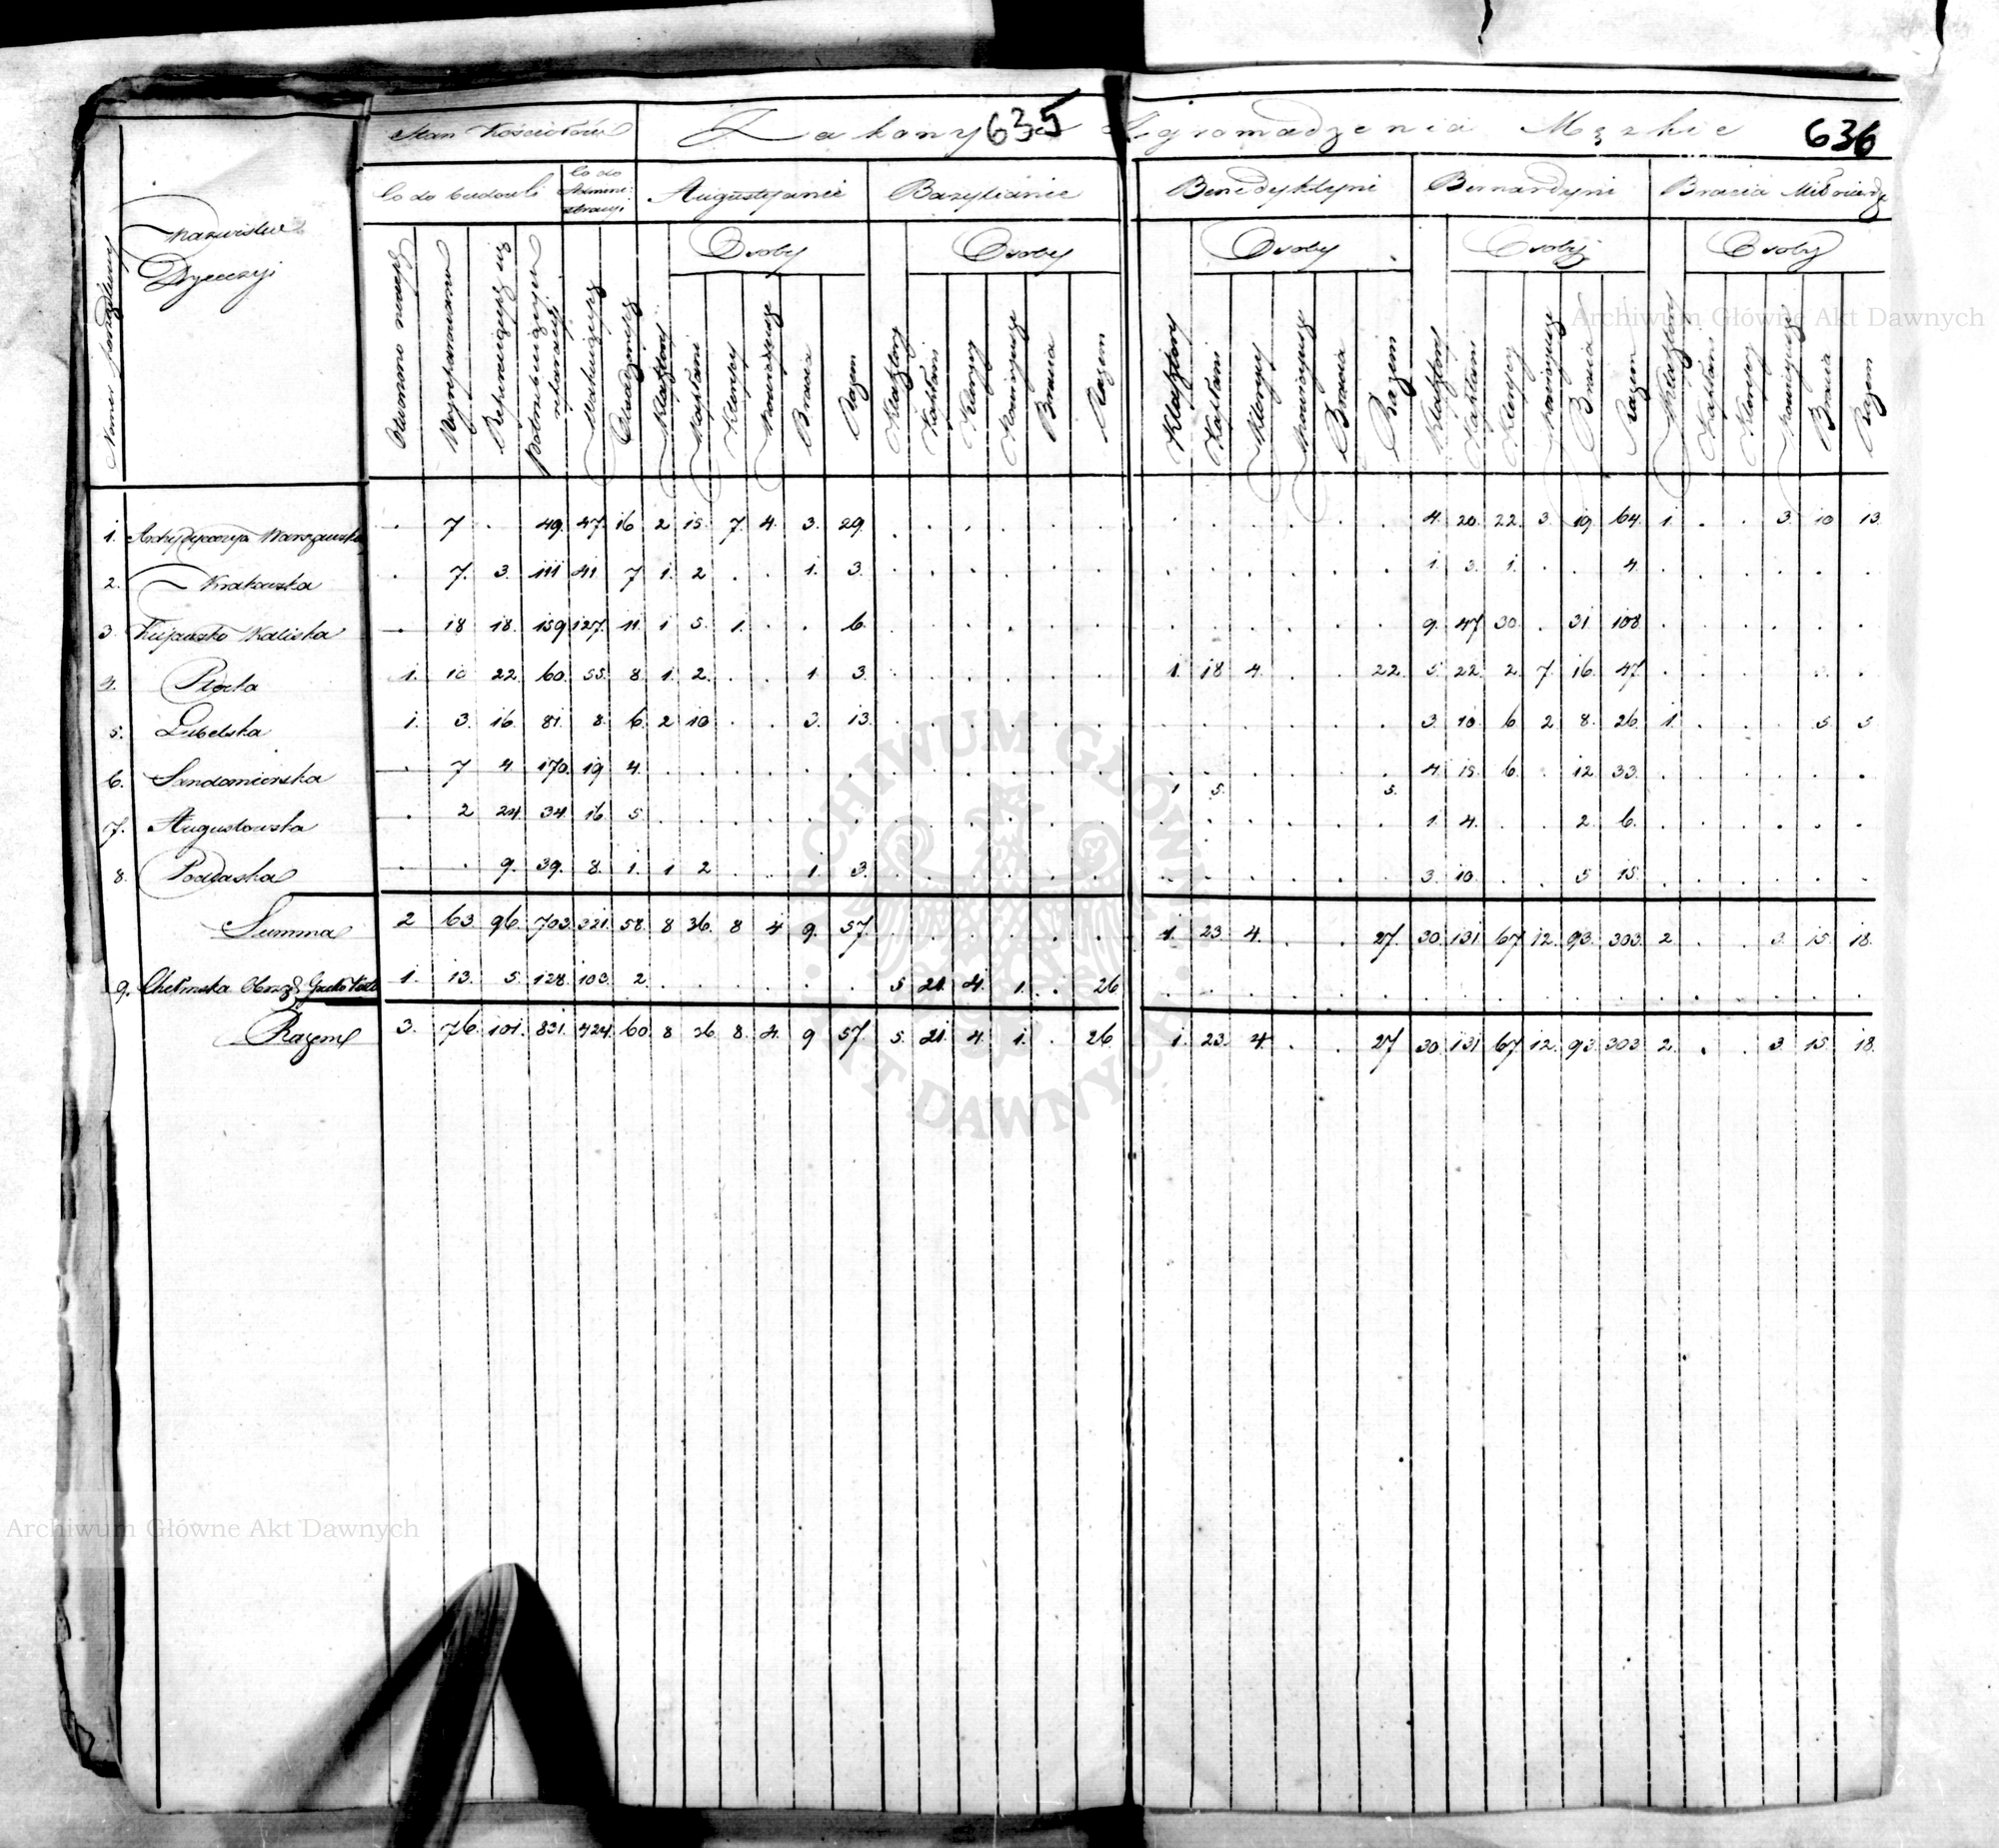 635
636
Stan Kościołów Zakony Zgromadzenia Męzkie
Co do budowli Co do Admini: stracyi Augustyanie Bazylianie Benedyktyni Bernardyni Bracia Miłosierdz
Numer porządkowy Nazwiska Dyecezyi
Osoby Osoby Osoby Osoby Osoby
Wyreparowano potrzebujących reparacyi Klasztory Kapłani Klerycy Nowicyusze Bracia Razem Klasztory Kapłani Klerycy Nowicyusze Bracia Razem Klasztory Kapłani Klerycy Nowicyusze Bracia Razem Klasztory Kapłani Klerycy Nowicyusze Bracia Razem Klasztory Kapłani Klerycy Nowicyusze Bracia Razem
1. Archidyecezya Warszawska . 7 . 49. 47. 16 2 15. 7 4. 3. 29. . . . . . . . . . . . . 4. 20. 22. 3. 19. 64. 1. . . 3. 10 13.
2. Krakowska . 7. 3. 111 41 7 1. 2 . . 1. 3. . . . . . . . . . . . . 1. 3. 1. . . 4. . . . . . .
3. Kujawsko Kaliska . 18 18. 159 127. 11. 1 5. 1. . . 6. . . . . . . . . . . . . 9. 47 30. . 31. 108. . . . . . .
4. Płocka 1. 10 22. 60. 55. 8. 1. 2. . . 1. 3. . . . . . . 1. 18 4. . . 22. 5. 22. 2. 7 16. 47. . . . . . .
5. Lubelska 1. 3. 16. 81. 8. 6. 2 10 . . 3. 13. . . . . . . . . . . . . 3. 10. 6 2 8. 26. 1. . . . 5. 5
6. Sandomierska . 7 4. 170. 19 4. . . . . . . . . . . . . 1 5. . . . 5. 4. 15. 6. . 12. 33. . . . . . .
7. Augustowska . 2 24. 34. 16. 5. . . . . . . . . . . . . . . . . . . 1. 4. . . 2. 6. . . . . . .
8. Podlaska . . 9. 39. 8. 1. 1 2 . . 1. 3. . . . . . . . . . . . . 3. 10. . . 5 15. . . . . . .
Summa 2 63. 96. 703. 321. 58. 8 36. 8 4 9. 57. . . . . . . 1. 23. 4. . . 27. 30. 131. 67. 12. 93. 303. 2. . . 3. 15. 18.
9. Chełmska Obrząd: 1. 13. 5. 128. 103. 2. . . . . . . 5. 21. 4. 1. . 26. . . . . . . . . . . . . . . . . . .
Razem 3. 76. 101. 831. 424. 60. 8 36. 8. 4. 9 57. 5. 21. 4. 1. . 26. 1. 23. 4. . . 27 30. 131. 67 12. 93. 303. 2. . . 3. 15. 18.
Archiwum Główne Akt Dawnych
ARCHIWUM GŁÓWNE AKT DAWNYCH
Archiwum Główne Akt Dawnych